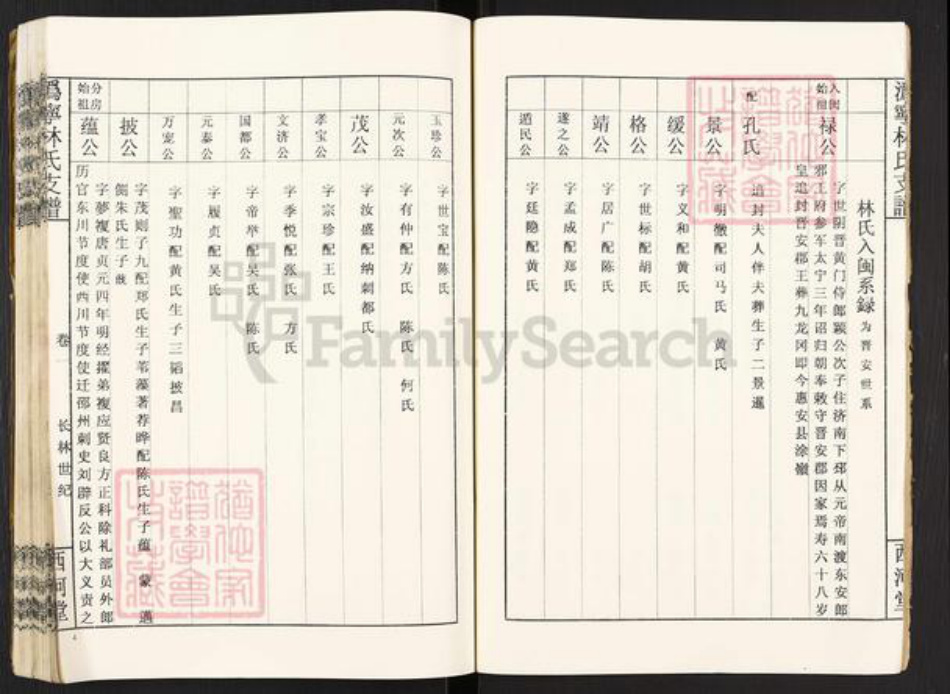 林氏入闽系録 为晋安世系
入闽始祖
禄公
字世朗晋黄门侍郎颖公次子住济南下邳从元帝南渡东安郎
邪王府参军太宁三年诏归朝奉敕守晋安郡因家焉寿六十八岁
皇追封晋安郡王葬九龙冈即今惠安县涂嶺
配
孔氏
追封夫人伴夫葬生子二景暹
景公
字明徵配司马氏 黄氏
缓公
字义和配黄氏
格公
字世标配胡氏
靖公
字居广配陈氏
遂之公
字孟成配郑氏
遁民公
字廷隐配黄氏
玉珍公
字世宝配陈氏
元次公
字有仲配方氏 陈氏 何氏
茂公
字汝盛配纳刺都氏
孝宝公
字宗珍配王氏
文济公
字季悦配张氏 方氏
国都公
字帝举配吴氏 陈氏
元泰公
字履贞配吴氏
万宠公
字聖功配黄氏生子三韬披昌
披公
字茂则子九配郑氏生子苇藻著荐晔配陈氏生子蕴 蒙 邁
侧朱氏生子蔇
分房始祖
蕴公
字夢複唐贞元四年明经擢弟複应贤良方正科除礼部员外郎
历官东川节度使西川节度使迁邵州刺史刘辟反公以大义责之
林氏支譜
卷
长林世纪
西河堂
林氏支譜
西河堂
FamilySearch